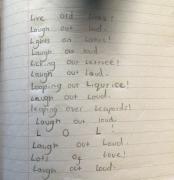 Live Old Lives!
Laugh out loud.
Lights on Lanes!
Laugh out loud.
Licking our
Laugh out loud.
Looping our Liqurice!
Laugh out Loud.
Leaping over Leopards!
Laugh out loud.
L O L !
Laugh out Loud.
Lots of love!
Laugh out loud.